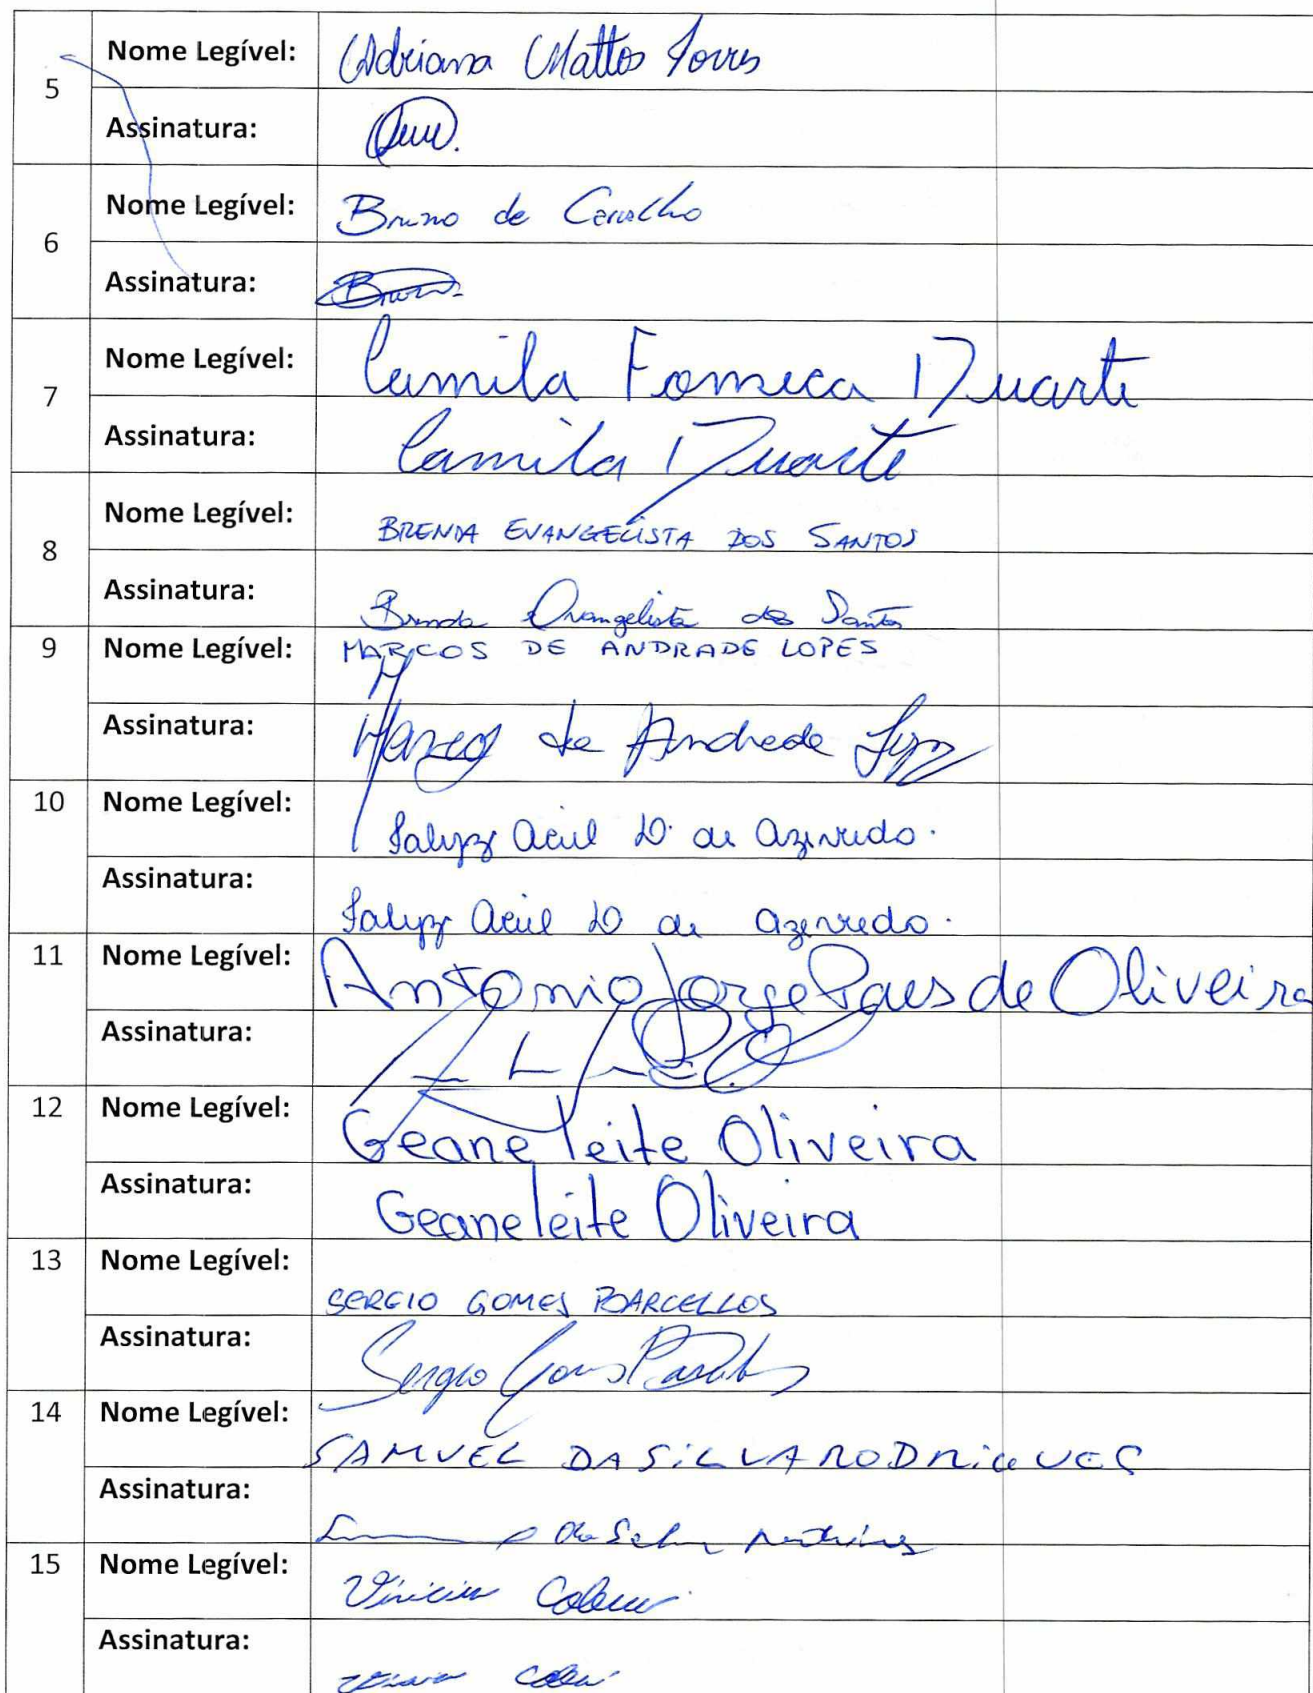 5 Nome Legível: Adriana Mattos Torres
Assinatura:
6 Nome Legível: Bruno de Carvalho
Assinatura: Bruno
7 Nome Legível: Camila Fonseca Duarte
Assinatura: Camila Duarte
8 Nome Legível: BRENDA EVANGELISTA DOS SANTOS
Assinatura: Brenda Evangelista dos Santos
9 Nome Legível: MARCOS DE ANDRADE LOPES
Assinatura: Marcos de Andrade
10 Nome Legível: de Azevedo.
Assinatura: de Azevedo.
11 Nome Legível: Antonio Jorge Paes de Oliveira
Assinatura:
12 Nome Legível: Geane leite Oliveira
Assinatura: Geane leite Oliveira
13 Nome Legível: SERGIO GOMES BARCELLOS
Assinatura: Sergio Gomes
14 Nome Legível: SAMUEL DA SILVA RODRIGUES
Assinatura: da Silva
15 Nome Legível:
Assinatura: